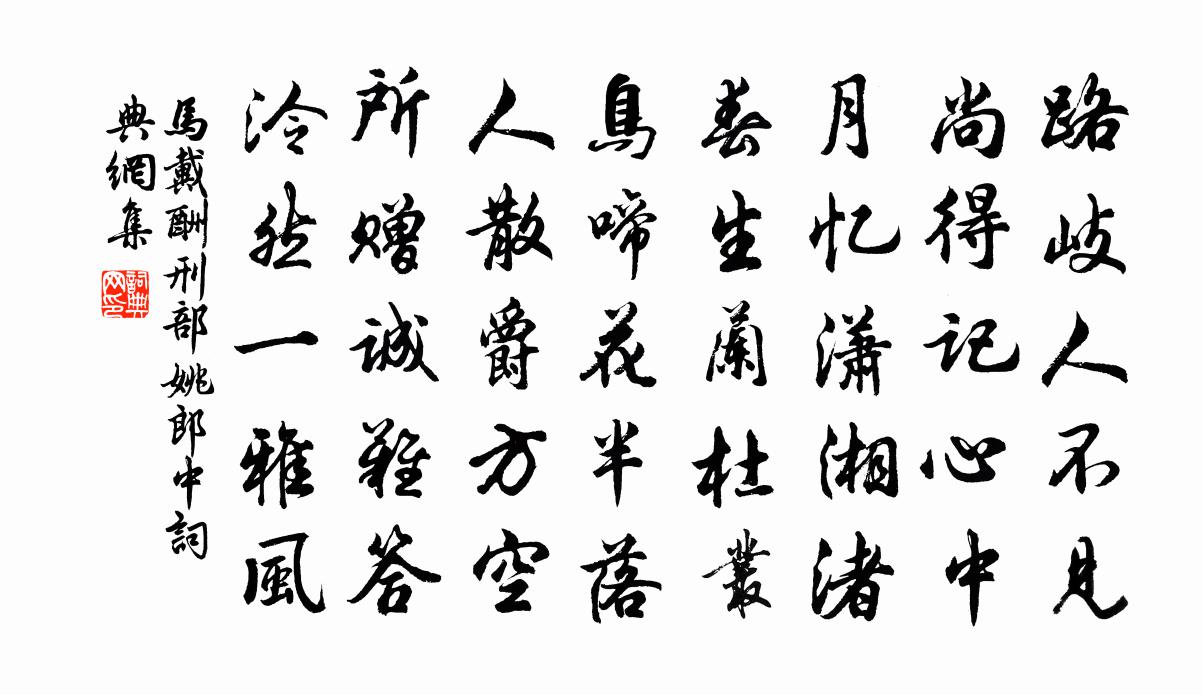 路歧人不見
尚得記心中
月忆瀟湘渚
春生蘭杜叢
鳥啼花半落
人散爵方空
所贈誠難答
泠然一雅風
馬戴酬刑部姚郎中詞
典網集
詞典
网印